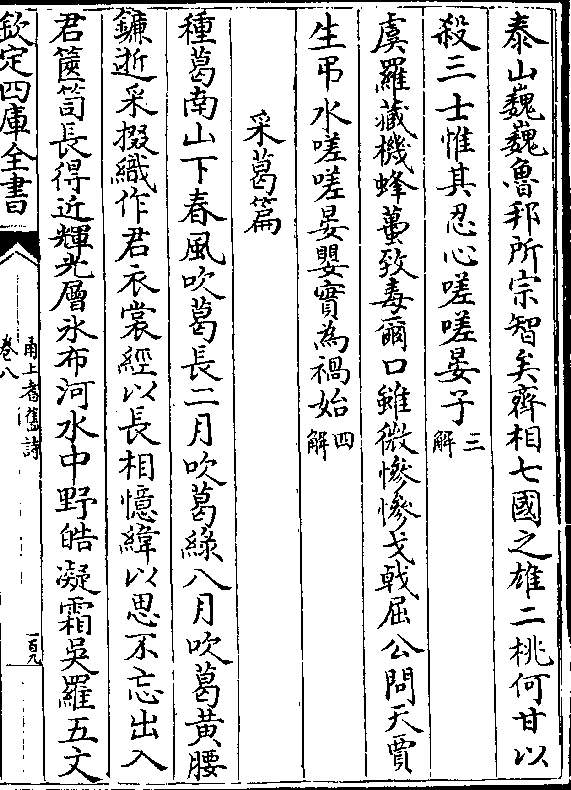 泰山巍巍魯邦所宗智矣齊相七國之雄二桃何甘以
殺三士惟其忍心嗟嗟晏子三解
虞羅藏機蜂蠆致毒爾口雖微慘慘戈戟屈公問天賈
生弔水嗟嗟晏嬰實為禍始四解
采葛篇
種葛南山下春風吹葛長二月吹葛綠八月吹葛黃腰
鐮逝采掇織作君衣裳經以長相憶緯以思不忘出入
君篋笥長得近輝光層氷布河水中野皓凝霜吳羅五文
欽定四庫全書
甬上耆舊詩
卷八
一百九